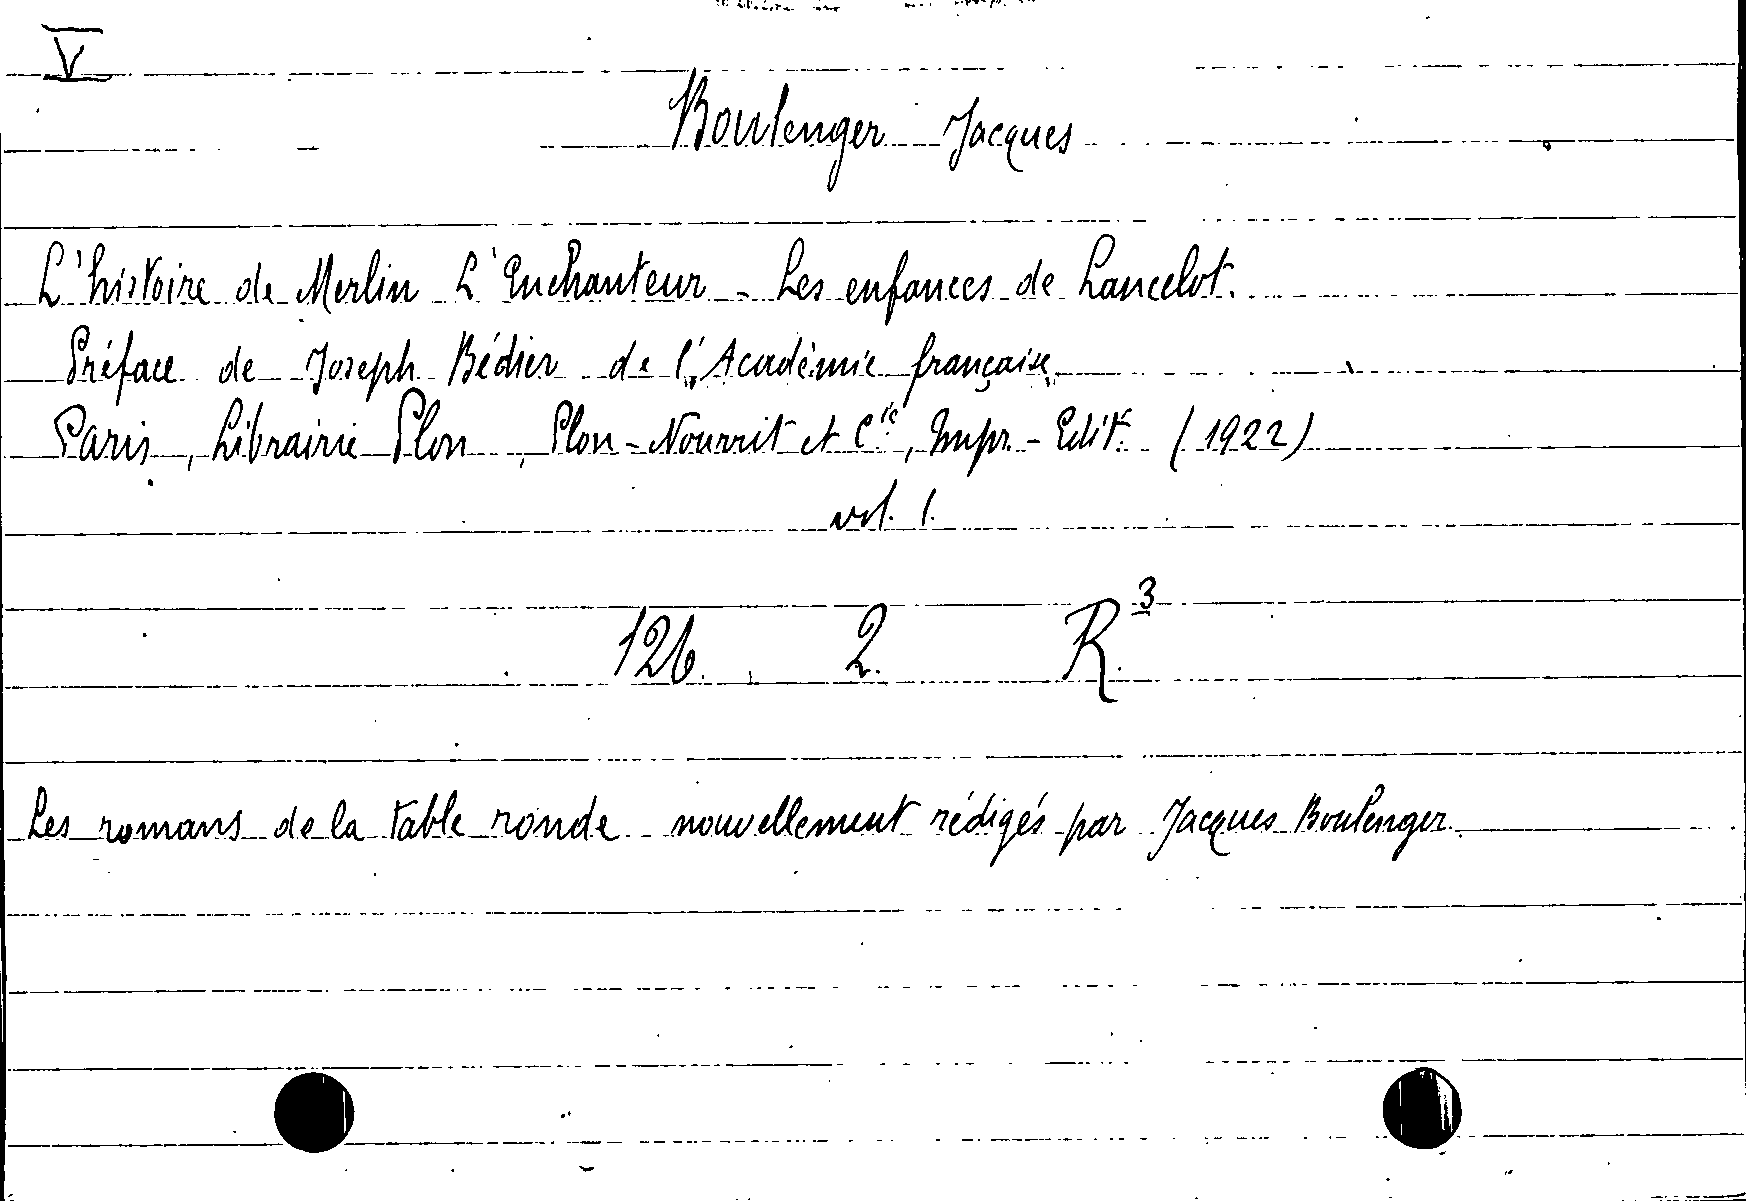 V
Boulenger Jacques
L'histoire de Merlin L'Enchanteur - Les enfances de Lancelot.
Préface de Joseph Bédier de l'„Académie française„
Paris, Librairie Plon, Plon-Nourrit et Cie, Impr.-Edit. (1922)
vol. 1.
126. 2. R.³
Les romans de la table ronde nouvellement rédigés par Jacques Boulenger.